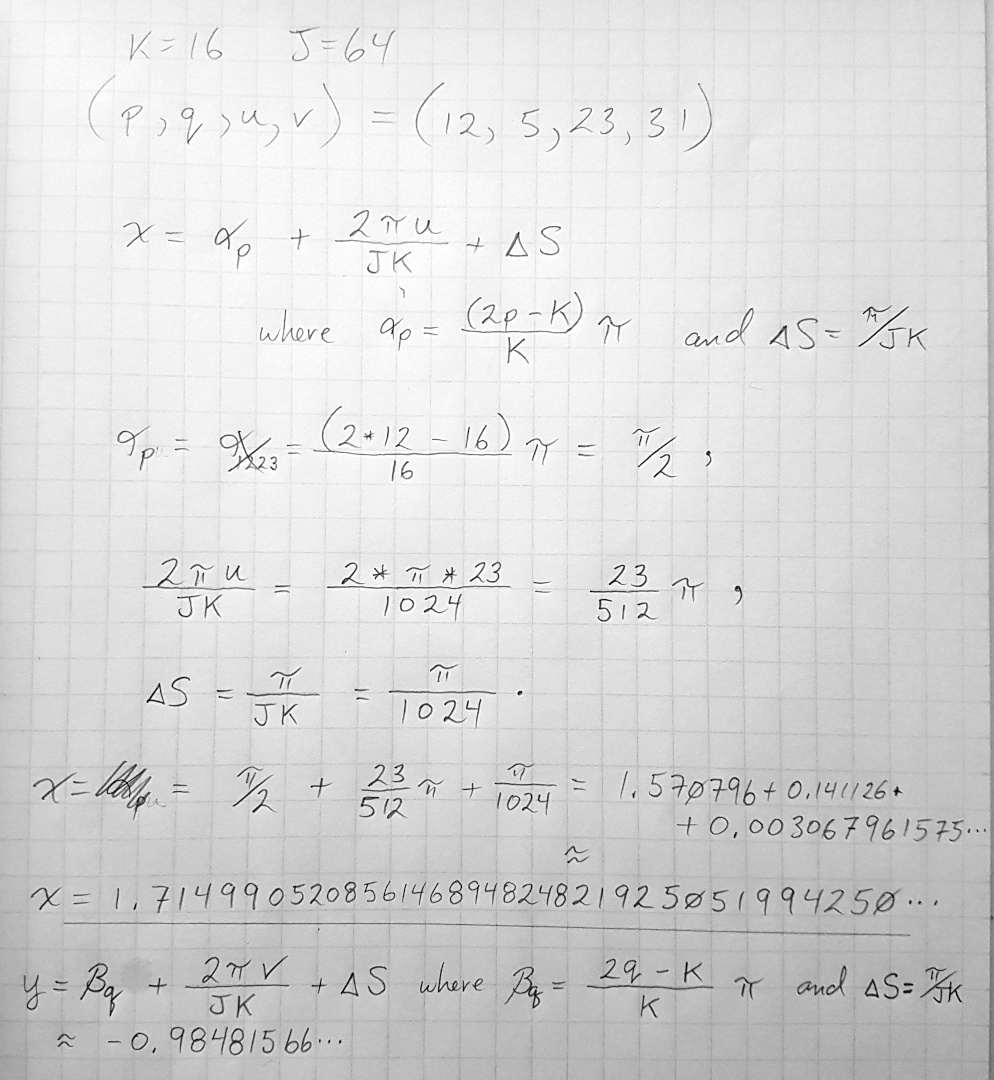 K=16 J=64
(p, q, u, v) = (12, 5, 23, 31)
x = α_p + 2πu/JK + ΔS
where α_p = (2p-K)/K π and ΔS = π/JK
α_p = = (2*12 - 16)/16 π = π/2 ,
2πu/JK = 2*π*23/1024 = 23/512 π ,
ΔS = π/JK = π/1024 .
x = = π/2 + 23/512 π + π/1024 = 1.570796 + 0.141126 +
+ 0.003067961575...
≈
x = 1.714990520856146894824821925051994250...
y = β_q + 2πv/JK + ΔS where β_q = 2q - K/K π and ΔS = π/JK
≈ -0.98481566...